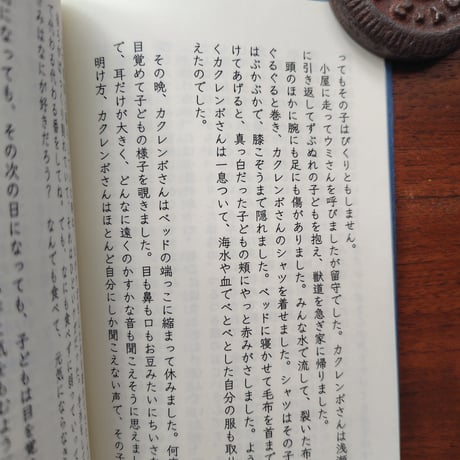 ってもその子はぴくりともしません。
小屋に走ってウミさんを呼びましたが留守でした。カクレンボさんは浅瀬
に引き返してずぶぬれの子どもを抱え、獣道を急ぎ家に帰りました。
頭のほかに腕にも足にも傷がありました。みんな水で流して、裂いた布
ぐるぐると巻き、カクレンボさんのシャツを着せました。シャツはその子
はぶかぶかで、膝こぞうまで隠れました。ベッドに寝かせて毛布を首ま
けてあげると、真っ白だった子どもの頬にやっと赤みがさしました。よう
くカクレンボさんは一息ついて、海水や血でべとべとした自分の服も取り
えたのでした。
その晩、カクレンボさんはベッドの端っこに縮まって休みました。何
目覚めて子どもの様子を覗きました。目も鼻も口もお豆みたいにちいさ
て、耳だけが大きく、どんなに遠くのかすかな音も聞こえそうに思えまし
明け方、カクレンボさんはほとんど自分にしか聞こえない声で、その子
になっても、その次の日になっても、子どもは目を覚